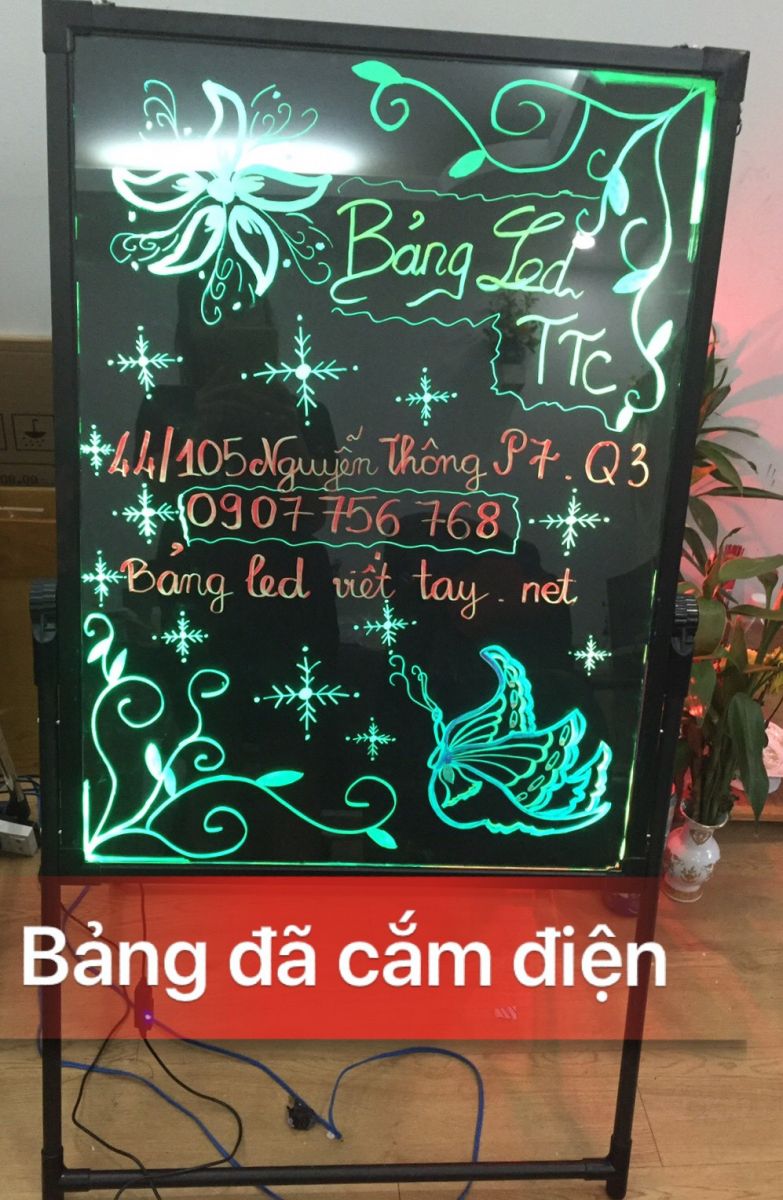 Bảng Led
TTC
44/105 Nguyễn Thông P7. Q3
0907 756 768
Bảng led viết tay. net
Bảng đã cắm điện